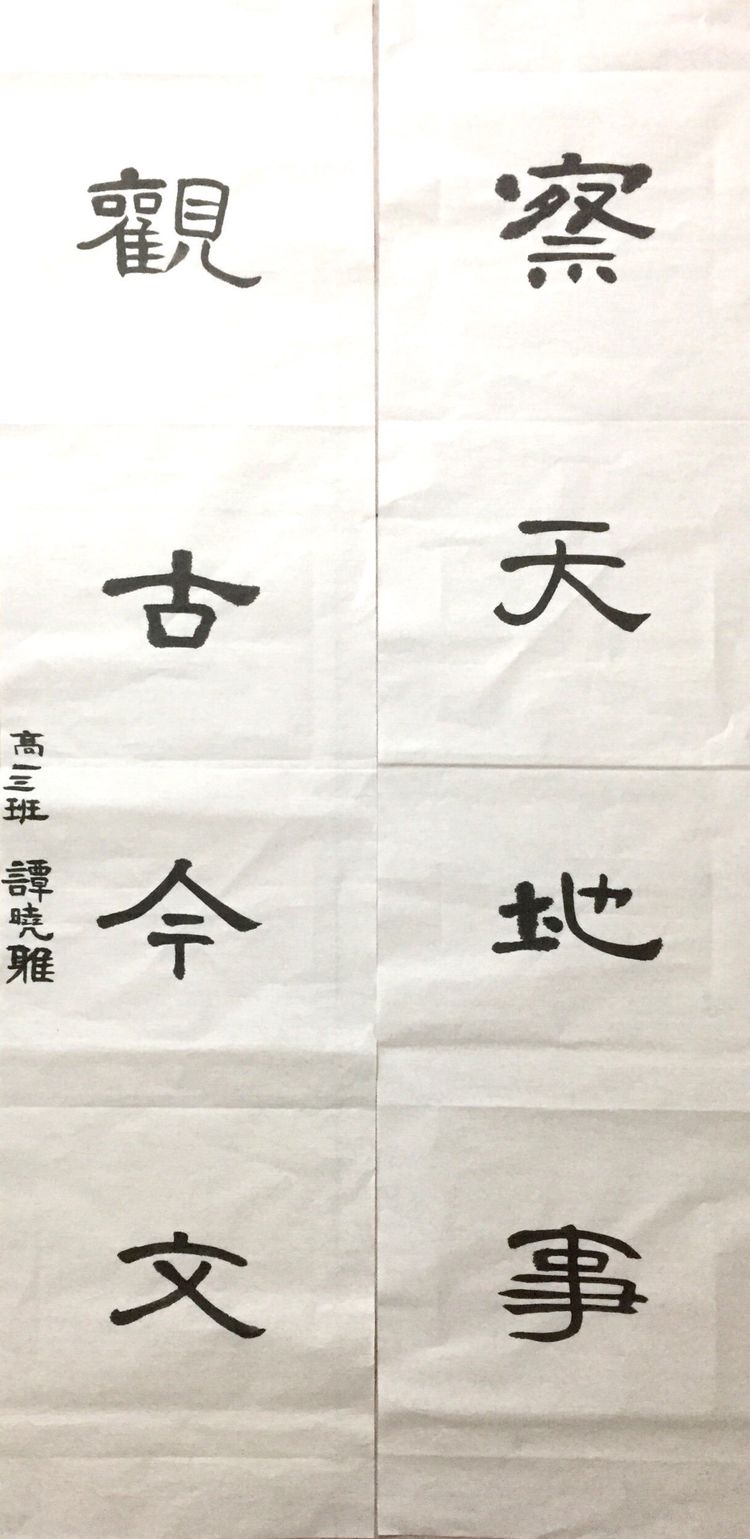 察天地事
觀古今文
高三三班 譚曉雅